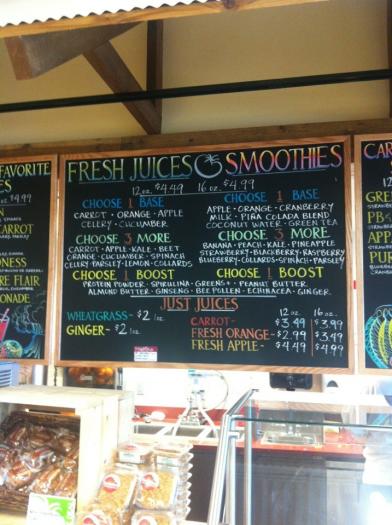 FAVORITE
FRESH JUICES & SMOOTHIES
12 oz. $4.49 16 oz. $4.99
CHOOSE 1 BASE
CARROT · ORANGE · APPLE
CELERY · CUCUMBER
CHOOSE 3 MORE
CARROT · APPLE · KALE · BEET
ORANGE · CUCUMBER · SPINACH
CELERY · PARSLEY · LEMON · COLLARDS
CHOOSE 1 BASE
APPLE · ORANGE · CRANBERRY
MILK · PIÑA COLADA BLEND
COCONUT WATER · GREEN TEA
CHOOSE 3 MORE
BANANA · PEACH · KALE · PINEAPPLE
STRAWBERRY · BLACKBERRY · RASPBERRY
BLUEBERRY · COLLARDS · SPINACH · PARSLEY
CHOOSE 1 BOOST CHOOSE 1 BOOST
PROTEIN POWDER · SPIRULINA · GREENS+ · PEANUT BUTTER
ALMOND BUTTER · GINSENG · BEE POLLEN · ECHINACEA · GINGER
JUST JUICES
WHEATGRASS - $2 1oz.
GINGER - $2 1oz.
12 oz. 16 oz.
CARROT - $3.49 $3.99
FRESH ORANGE - $2.99 $3.49
FRESH APPLE - $4.49 $4.99